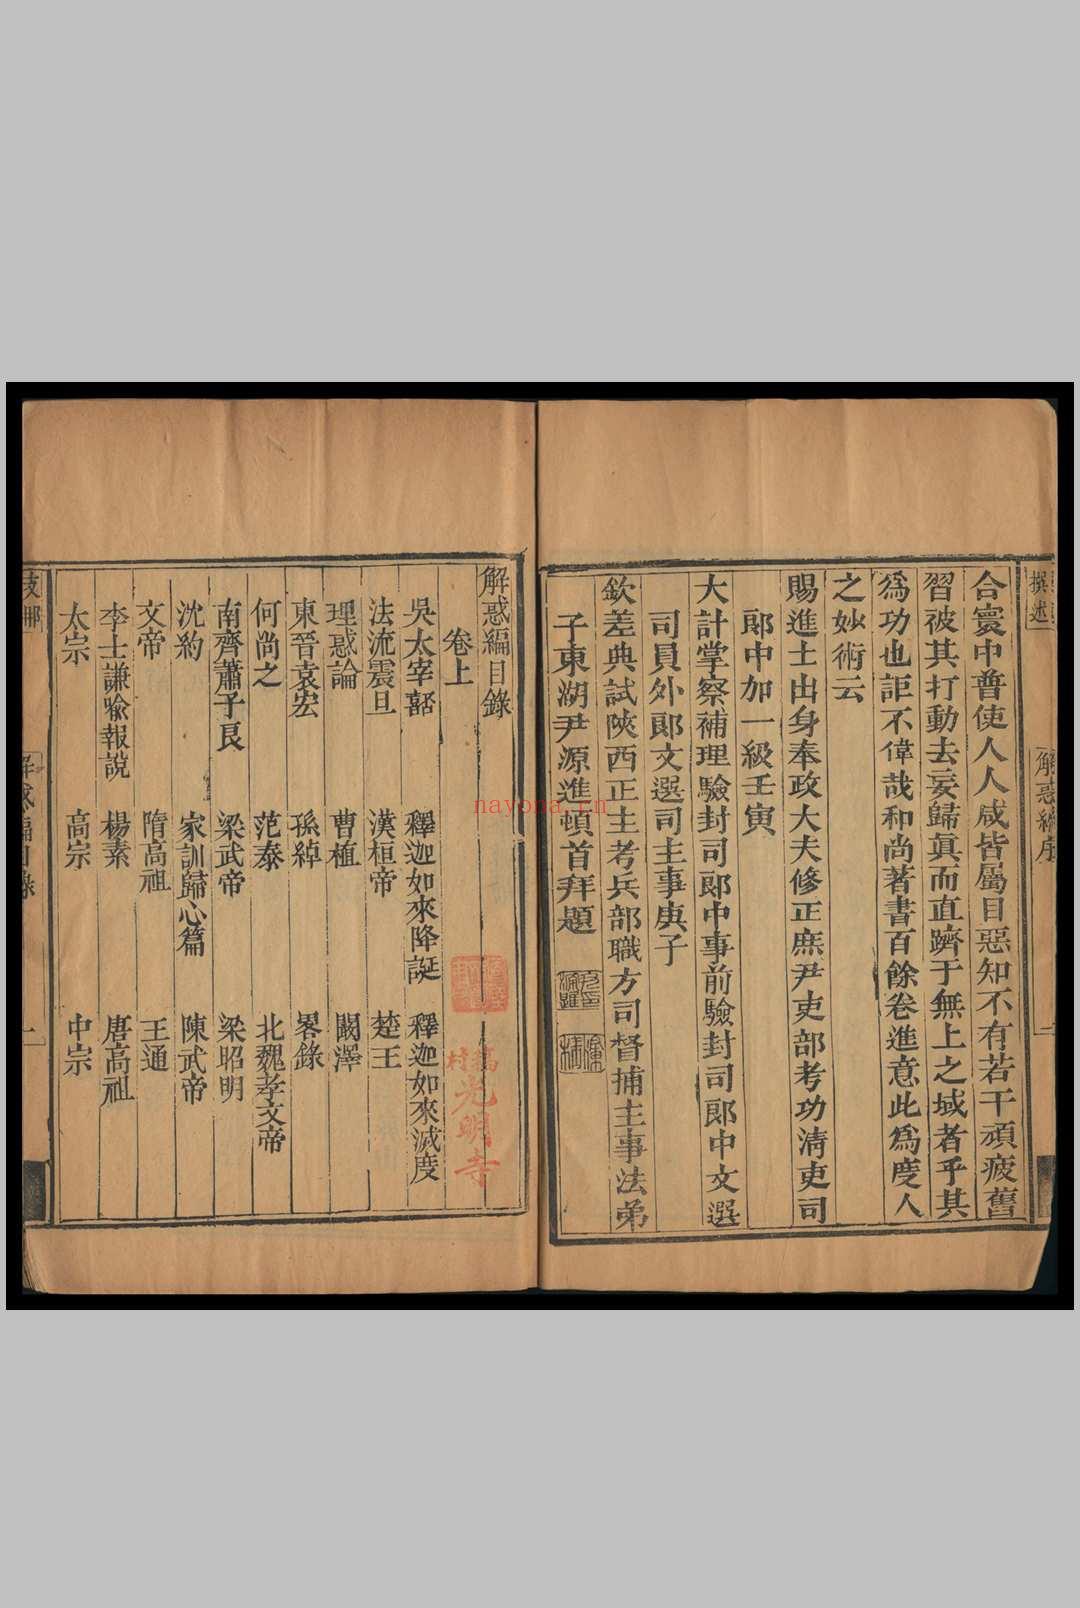 撰述
解惑編序
合寰中普使人人咸皆屬目惡知不有若干頑疲舊
習被其打動去妄歸真而直躋于無上之域者乎其
為功也詎不偉哉和尚著書百餘卷進意此為度人
之妙術云
賜進士出身奉政大夫修正庶尹吏部考功清吏司
郎中加一級壬寅
大計掌察補理驗封司郎中事前驗封司郎中文選
司員外郎文選司主事庚子
欽差典試陝西正主考兵部職方司督捕主事法弟
子東湖尹源進頓首拜題
解惑編目錄
卷上
吳太宰嚭 釋迦如來降誕 釋迦如來滅度
法流震旦 漢桓帝 楚王
理惑論 曹植 闞澤
東晉袁宏 孫綽 畧錄
何尚之 范泰 北魏孝文帝
南齊蕭子良 梁武帝 梁昭明
沈約 家訓歸心篇 陳武帝
文帝 隋高祖 王通
李士謙喩報說 楊素 唐高祖
太宗 高宗 中宗
支那
解惑編目錄
一
光明寺
nayona.cn